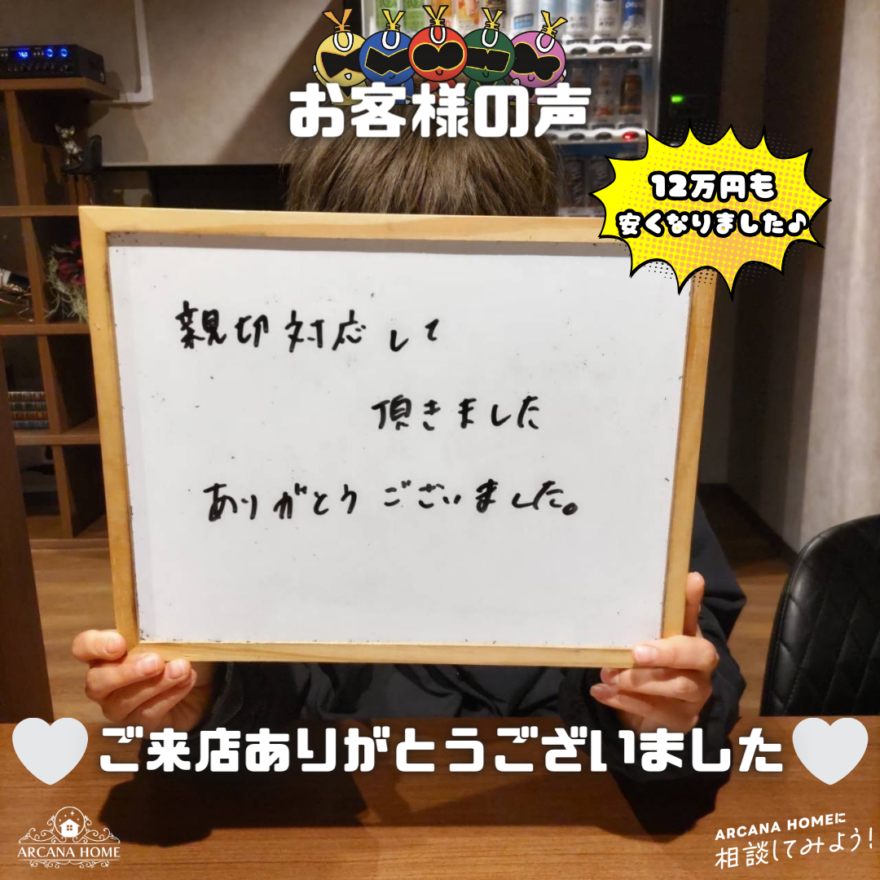 お客様の声
12万円も
安くなりました♪
親切対応して
頂きました
ありがとうございました。
ご来店ありがとうございました
ARCANA HOME
ARCANA HOMEに
相談してみよう!